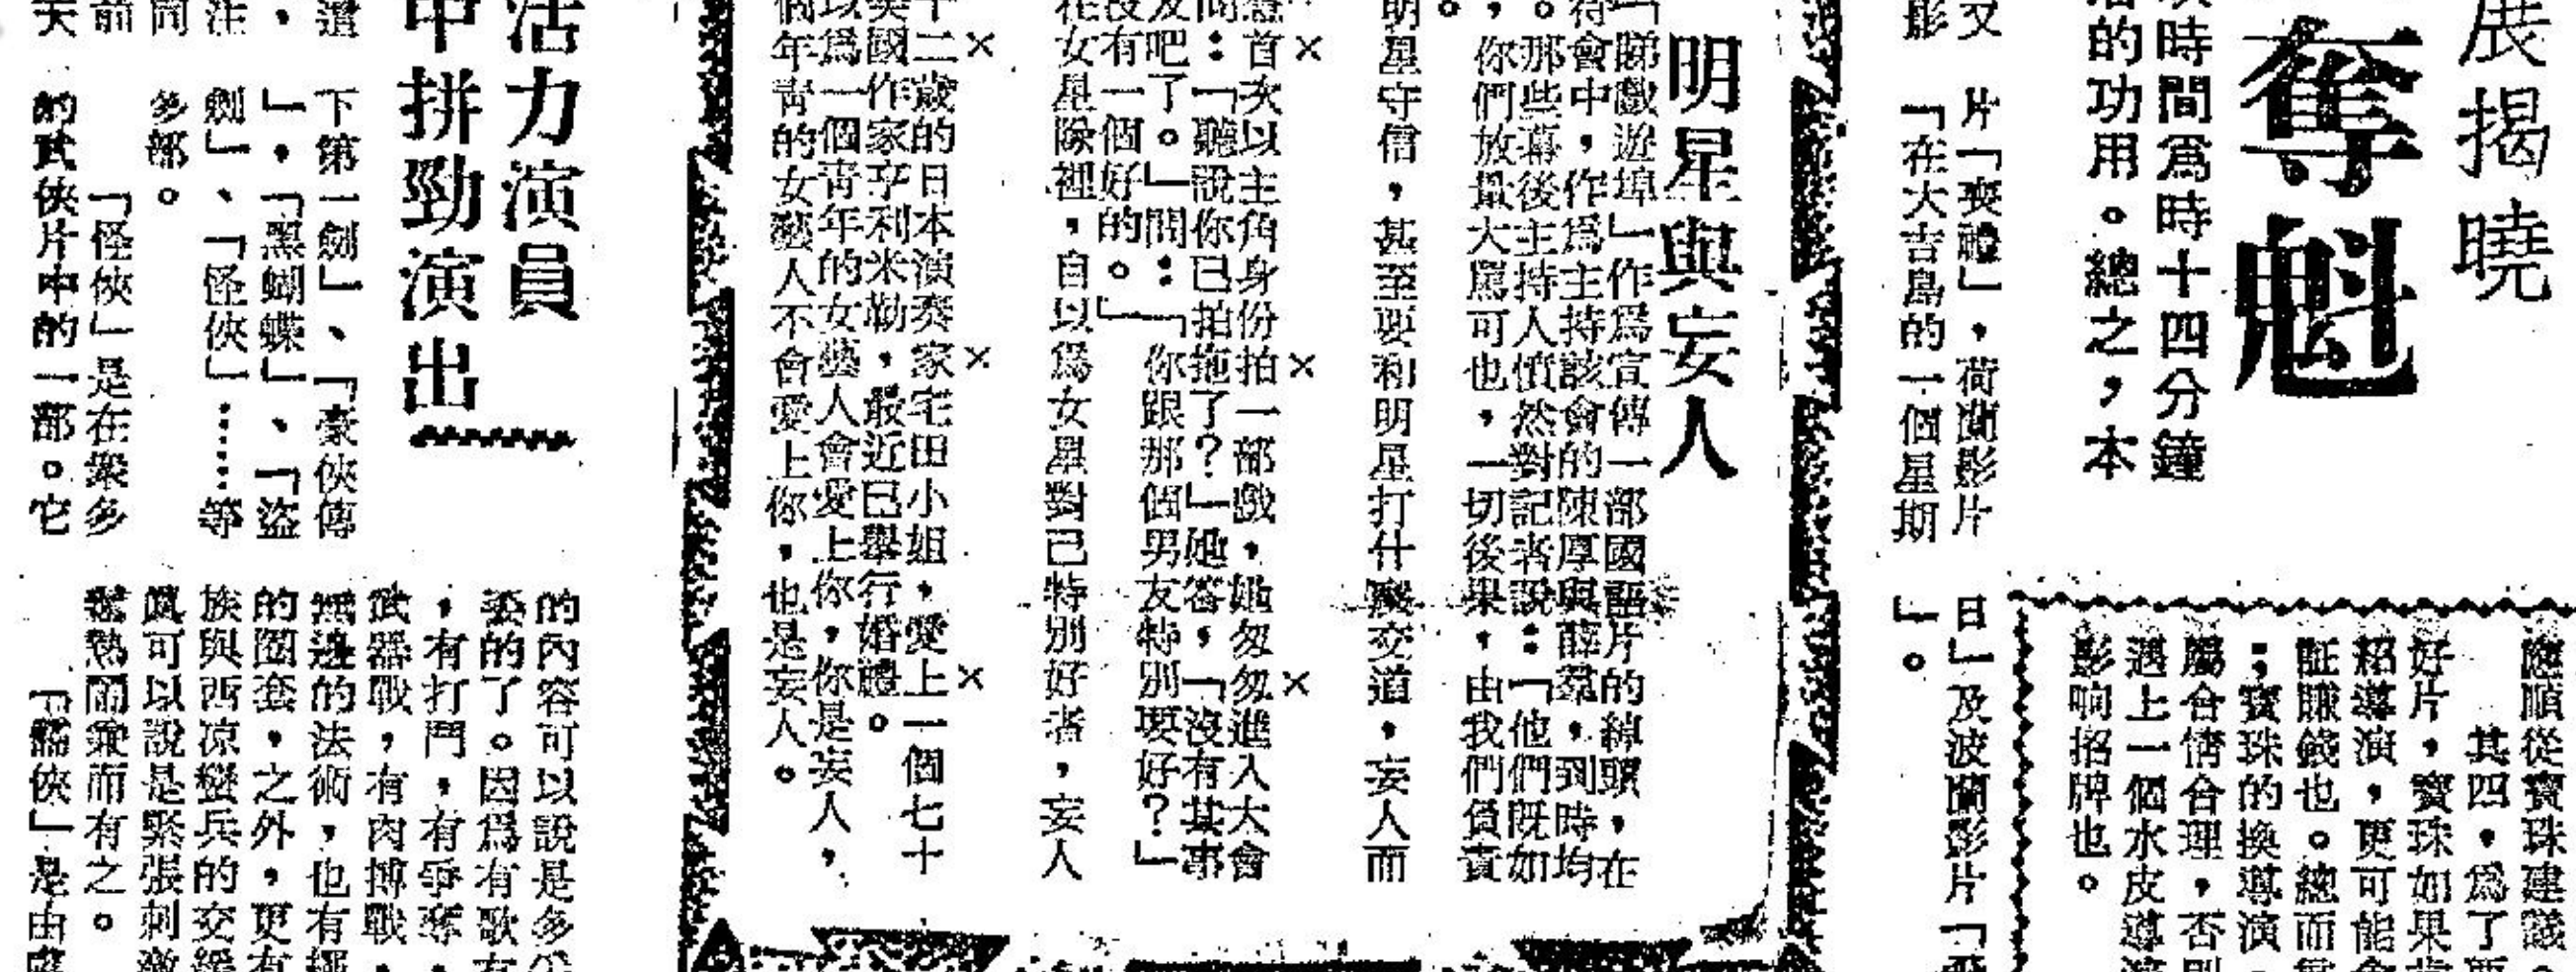 展揭曉
奪魁
時間爲時十四分鐘
的功用。總之，本
片「喪禮」，荷蘭影片
「在大吉島的一個星期
日」及波蘭影片「
」。
應順從寶珠建議。
其四，爲了
好片，寶珠如果
紹導演，更可能
証賺錢也。總而
；寶珠的換導演，
屬合情合理，否則
遇上一個水皮導演
影响招牌也。
明星與妄人
「睇戲遊埠」作爲宣傳一部國語片的綽頭，在
待會中，作爲主持該會的陳厚與薛羣，到時均
。那些幕後主持人憤然對記者說：「他們既如
，你們放量大罵可也，一切後果，由我們負責
。
明星守信，甚至要和明星打什麽交道，妄人而
×　×　×
首次以主角身份拍一部戲，她匆匆進入大會
問：「聽說你已拍拖了？」她答，「沒有其事
及吧了。」問：「你跟那個男友特別要好？」
沒有一個好的。」
在女星隊裡，自以爲女星對己特別好者，妄人
×　×　×
十二歲的日本演奏家宅田小姐，愛上一個七十
美國作家亨利米勒，最近已舉行婚禮。
以爲一個青年的女藝人會愛上你，你是妄人，
個年青的女藝人不會愛上你，也是妄人。
活力演員
中拼勁演出
下第一劍」、「豪俠傳
」，「黑蝴蝶」、「盜
劍」、「怪俠」……等
多部。
「怪俠」是在衆多
的武俠片中的一部。它
的內容可以說是多
的了。因爲有歌有
，有打鬥，有爭奪，
武器戰，有肉搏戰，
無邊的法術，也有
的圈套，之外，更有
族與西凉蠻兵的交
真可以說是緊張刺激
熱鬧兼而有之。
「俠」是由